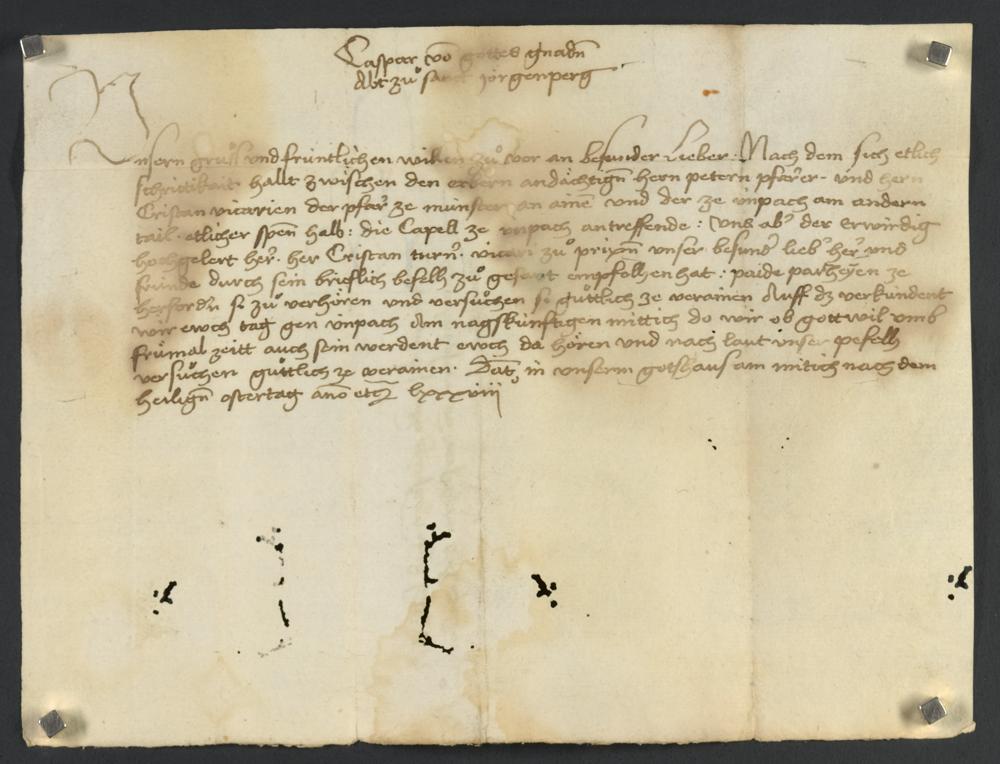 Caspar vo gottes gnadn
Abt zů sanct jörgenperg
Unsern grůß vnd früntlichen willen zů vor an besunder Lieber Nach dem sich etlich
hallt zwischen den erbern andächtign hern petern pfarer vnd hern
Cristan vicarien der pfar ze münster an ainē vnd der ze vnpach am andern
tail etlicher spen halb: die Capell ze vnpach antreffende: Vns ab der erwirdig
hochgelert her her Cristan turn vicari zů prixn vnser besund lieb her vnd
fründe durch sein brieflich befelh zů gesant empfolhen hat: paide partheyen ze
si zů verhören vnd versůchen si gůttlich ze verainen Auff dz verkündent
wir ewch tag gen vnpach Am nagskünftigen mittich do wir ob gott wil vmb
frůmal zeitt auch sein werdent ewch da hören vnd nach laut vnser pefelh
versůchen gůttlich ze verainen. Dat in vnserm gotzhaus am mitich nach dem
heilign ostertag ano etc lxxxviii